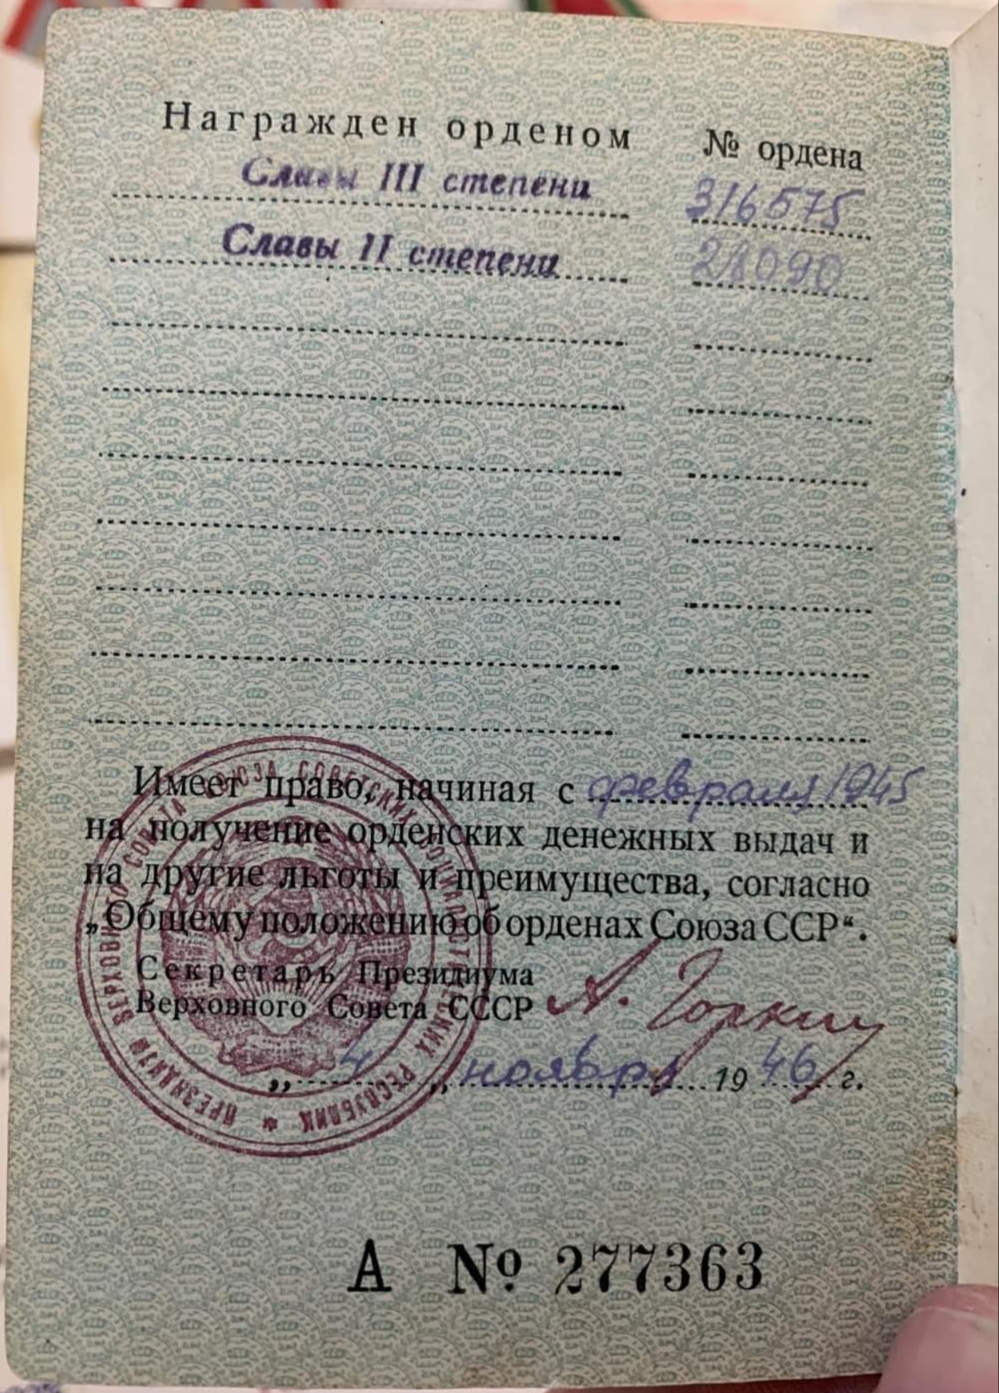 Награжден орденом № ордена
Славы III степени 316575
Славы II степени 21090
Имеет право, начиная с февраля 1945
на получение орденских денежных выдач и
на другие льготы и преимущества, согласно
„Общему положению об орденах Союза ССР“.
Секретарь Президиума
Верховного Совета СССР А. Горкин
„ 4 „ ноября 1946 г.
ПРЕЗИДИУМ ВЕРХОВНОГО СОВЕТА СОЮЗА СОВЕТСКИХ СОЦИАЛИСТИЧЕСКИХ РЕСПУБЛИК *
А № 277363